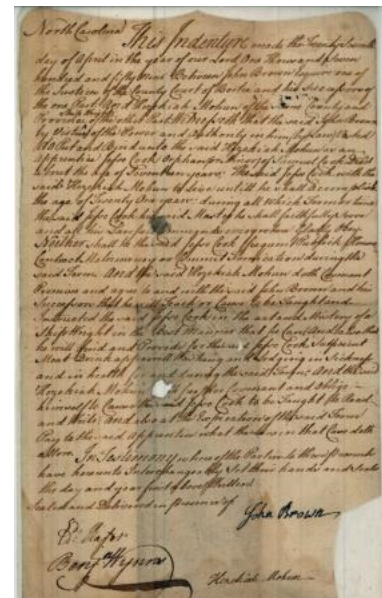 North Carolina This Indenture made the Twenty Seventh
day of April in the year of our Lord One Thousand Seven
hundred and fifty Nine Between John Brown Esquire one of
the Justices of the County Court of Bertie and his Successors of
the one Part And Hezekiah Mohun of the same County and
Province of the other Part Witnesseth that the said John Brown
by Virtue of the Power and Authority in him by Law Vested
Put and Bind unto the said Hezekiah Mohun as an
Apprentice Cook Orphan Cook
about the age of Seventeen years The said Cook with the
said Hezekiah Mohun to Live untill he shall Accomplish
the age of Twenty One years during all which Term or time
the said Cook his said Master he shall faithfully Serve
and all his Lawfull Commands Gladly Obey
Neither shall he the said Cook
Contract Matrimony or Commit Fornication during the
said Term And the said Hezekiah Mohun doth Covenant
Promise and agree to and with the said John Brown and his
Successors that he will Teach or Cause to be Taught and
Instructed the said Cook in the art and Mistery of a
Ship Wright in the Best Manner that he Can And also that
he will find and Provide for the said Cook Sufficient
Meat Drink apparell Washing and Lodging in Sickness
and in health for and during the said Term And the said
Hezekiah Mohun Covenant and Oblige
himself to Cause the said Cook to be Taught to Read
and Write And also at the Expiration of the said Term
Pay to the said Apprentice what the Law in that Case doth
allow In Testimony whereof the Parties to these presents
have hereunto Interchangeably Set their hands and Seals
the day and year first above Written
Sealed and Delivered in presence of
John Brown
Benj Wynns
Hezekiah Mohun